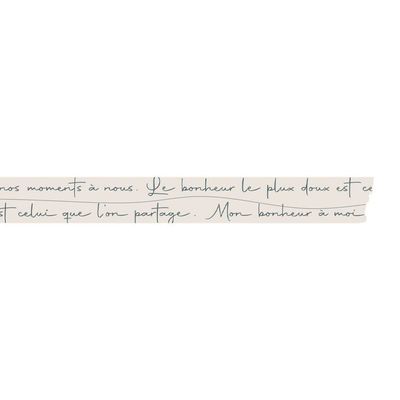 nos moments à nous. Le bonheur le plus doux est ce
st celui que l'on partage. Mon bonheur à moi